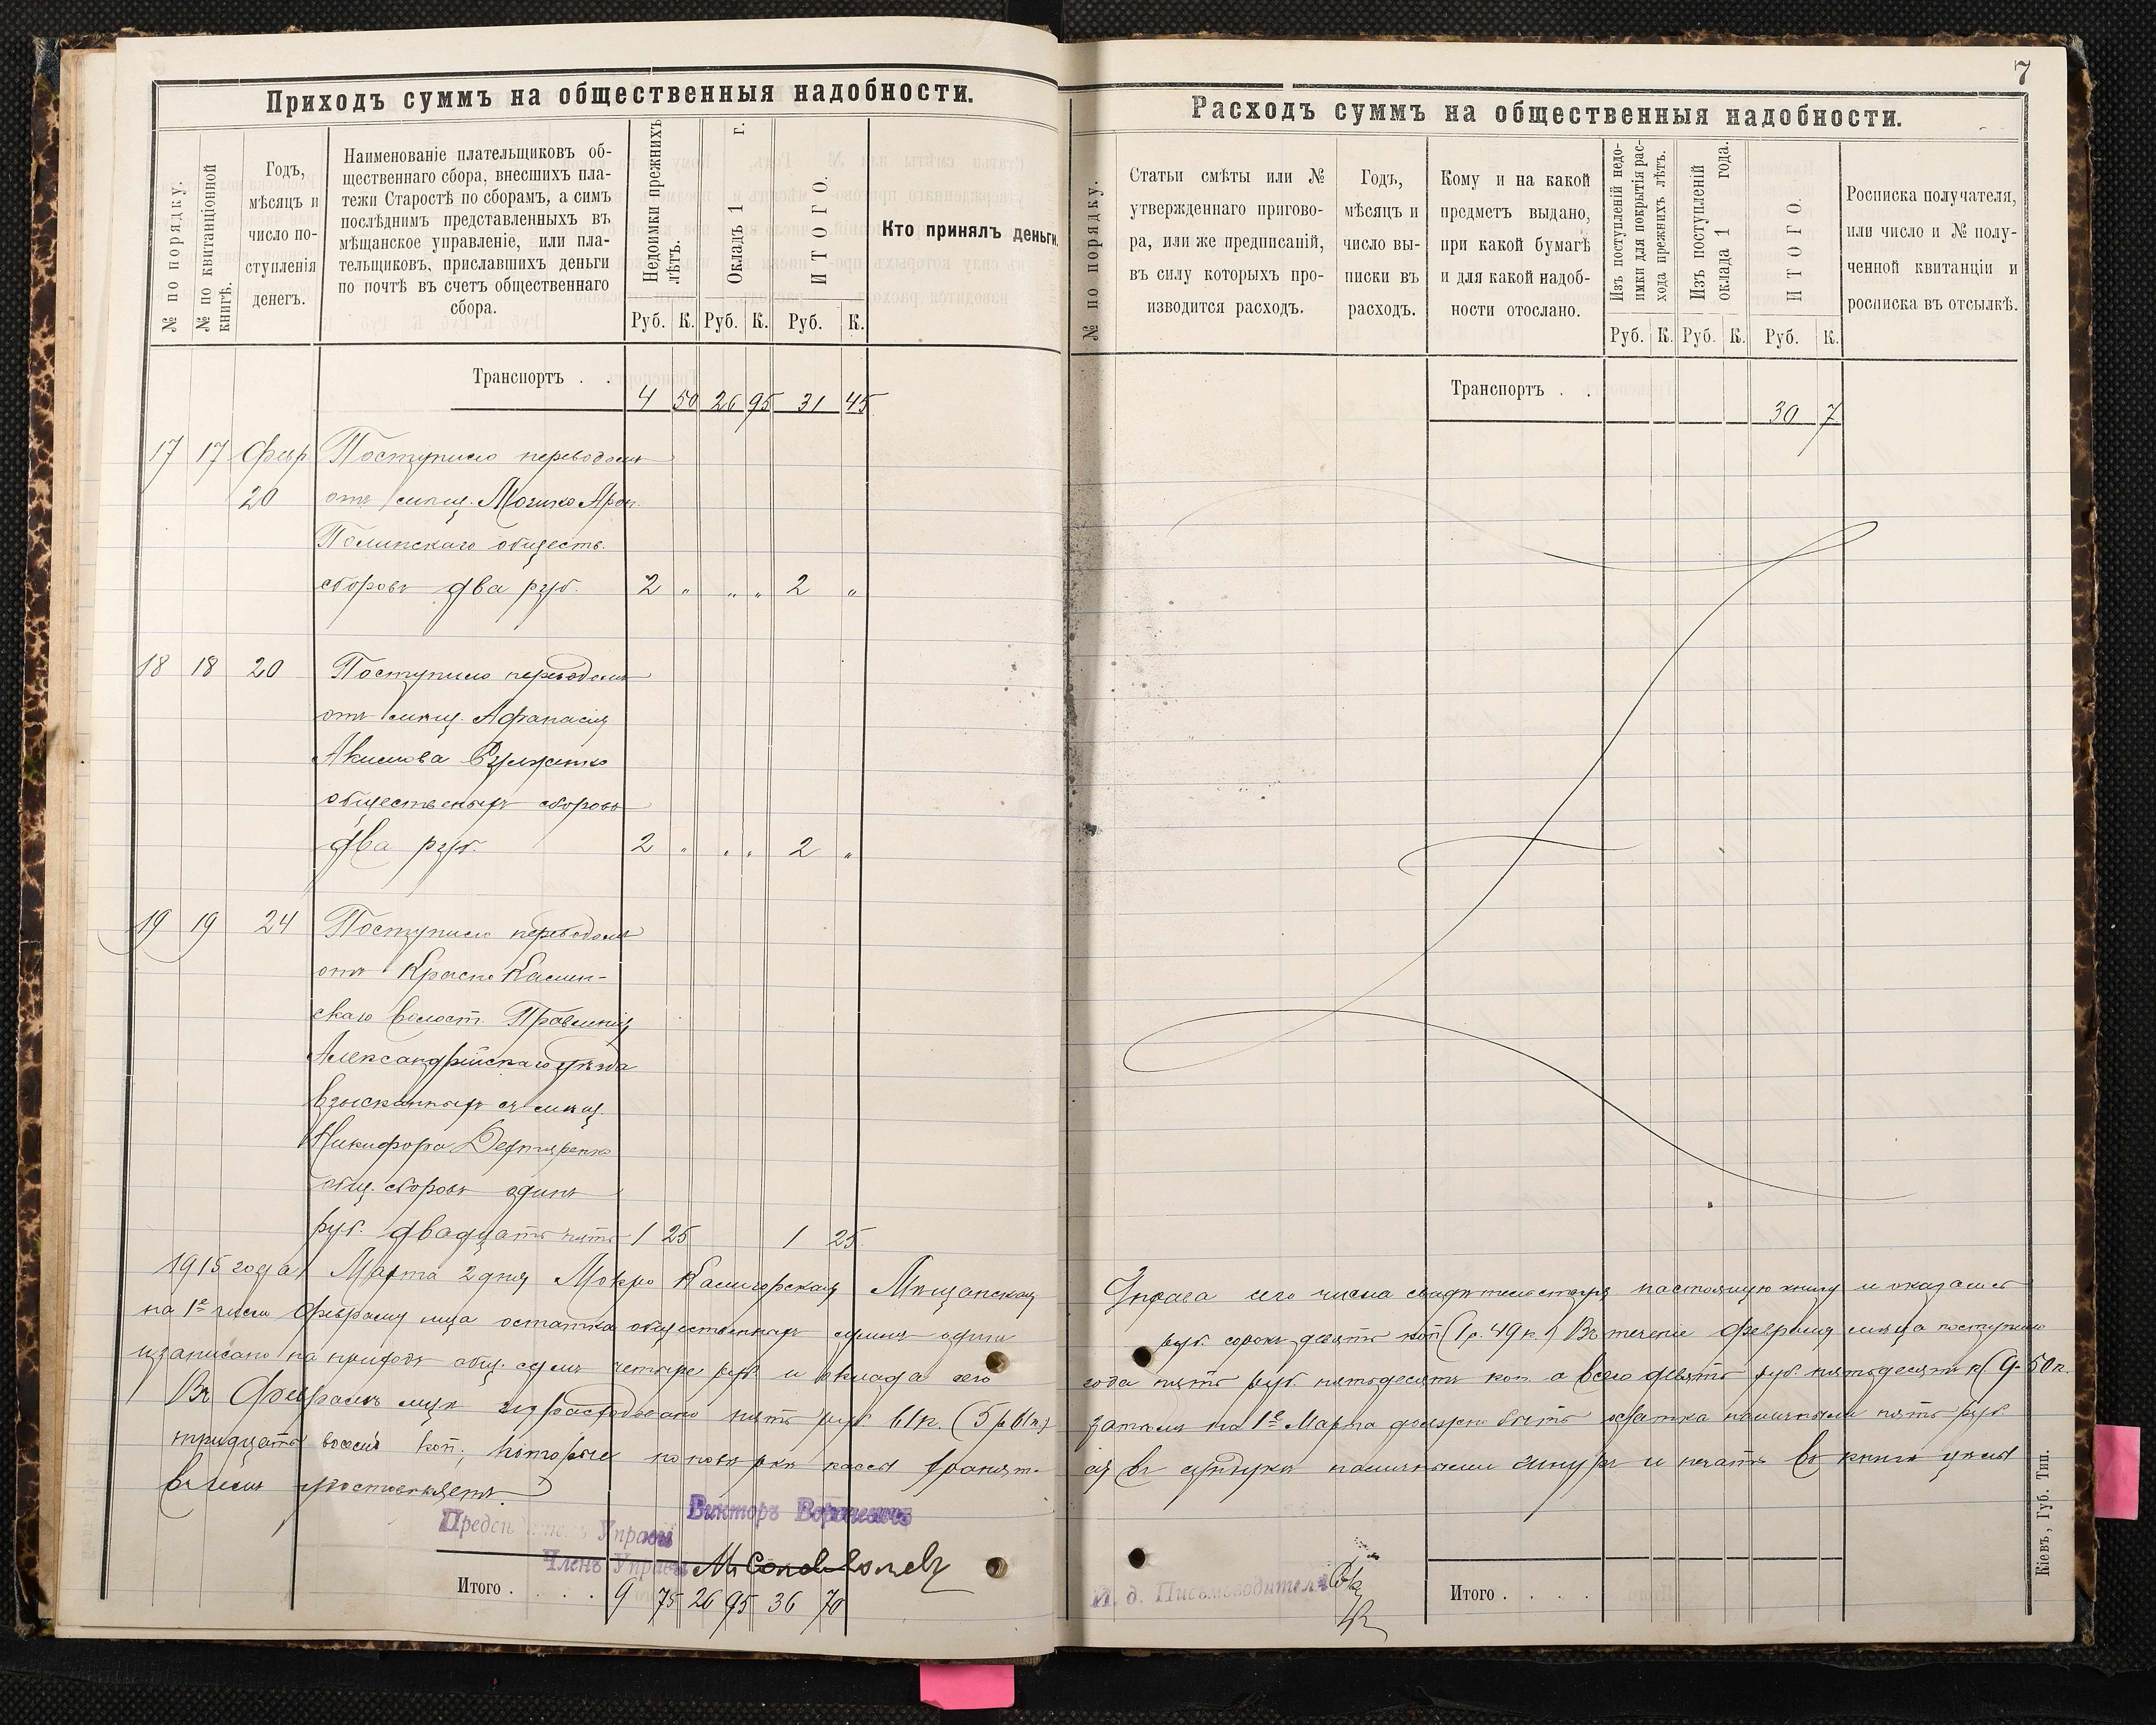 Приходъ суммъ на общественныя надобности.
№ по порядку.
№ по квитанціонной
книгѣ.
Годъ,
мѣсяцъ и
число по-
ступленія
денегъ.
Наименованіе плательщиковъ об-
щественнаго сбора, внесшихъ пла-
тежи Старостѣ по сборамъ, а симъ
послѣднимъ представленныхъ въ
мѣщанское управленіе, или пла-
тельщиковъ, приславшихъ деньги
по почтѣ въ счетъ общественнаго
сбора.
Недоимки прежнихъ
лѣтъ.
Окладъ 1 г.
ИТОГО.
Кто принялъ деньги.
Руб. К. Руб. К. Руб. К.
Транспортъ . . 4 50 26 95 31 45
17 17 Февр Поступило переводомъ
20 отъ мѣщ. Мошко Арон.
общеcтв.
сборовъ два руб. 2 " " " 2 "
18 18 20 Поступило переводомъ
отъ мѣщ. Афанасія
Акимова
общественныхъ сборовъ
два руб. 2 " " " 2 "
19 19 24 Поступило переводомъ
отъ Красно Камен-
скаго Волост. Правленія
Александрійскаго уѣзда
взысканныхъ съ мѣщ.
Никифора Дегтяренко
общ. сборовъ одинъ
руб. двадцать пять 1 25 1 25
1915 года Марта 2 дня Мокро Калигорская Мѣщанская
на 1е число Февраля мца остатка общественныхъ суммъ одинъ
и записано на приходъ общ. суммъ четыре руб. и оклада сего
Въ Февралѣ мцѣ израсходовано пять руб. 61 к. (5 р 61 к)
тридцать восемь коп., которые по повѣркѣ кассы хранят-
Предсѣдатель Управы
Викторъ
Членъ Управы
Итого . . . . 9 75 26 95 36 70
7
Расходъ суммъ на общественныя надобности.
№ по порядку.
Статьи смѣты или №
утвержденнаго пригово-
ра, или же предписаній,
въ силу которыхъ про-
изводится расходъ.
Годъ,
мѣсяцъ и
число вы-
писки въ
расходъ.
Кому и на какой
предметъ выдано,
при какой бумагѣ
и для какой надоб-
ности отослано.
Изъ поступленій недо-
имки для покрытія рас-
хода прежнихъ лѣтъ.
Изъ поступленій
оклада 1 года.
ИТОГО.
Росписка получателя,
или число и № полу-
ченной квитанціи и
росписка въ отсылкѣ.
Руб. К. Руб. К. Руб. К.
Транспортъ . . 30 7
Управа сего числа свидѣтельствуя настоящую книгу и оказалось
руб. сорокъ девять коп (1 р. 49 к.) Въ теченіе Февраля мѣсяца поступило
года пять руб. пятьдесятъ коп. а всего девять руб. пятьдесятъ к (9-50 к.
затѣмъ на 1е Марта должно быть остатка наличными пять руб.
ся въ сундукѣ наличными шнуръ и печать въ книгѣ цѣлы
И. д. Письмоводителя
Итого . . . .
Кіевъ, Губ. Тип.